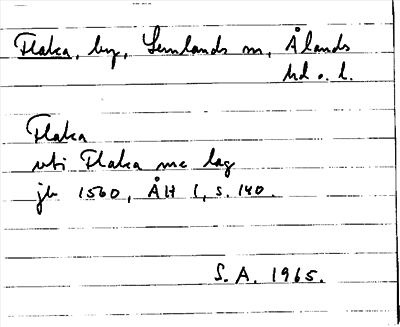 Flaka, by, Lemlands sn, Ålands
hd o. l.
Flaka
uti Flaka me lag
jb 1560, ÅH 1, s. 140.
S. A. 1965.